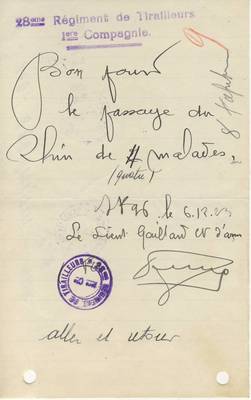 28ème Régiment de Tirailleurs
1ère Compagnie.
9
Bon pour
le passage du
Rhin de 4 malades.
(quatre)
le 6.12.23
Le Lieut Gaillard
28e RÉGIMENT DE TIRAILLEURS
aller et retour